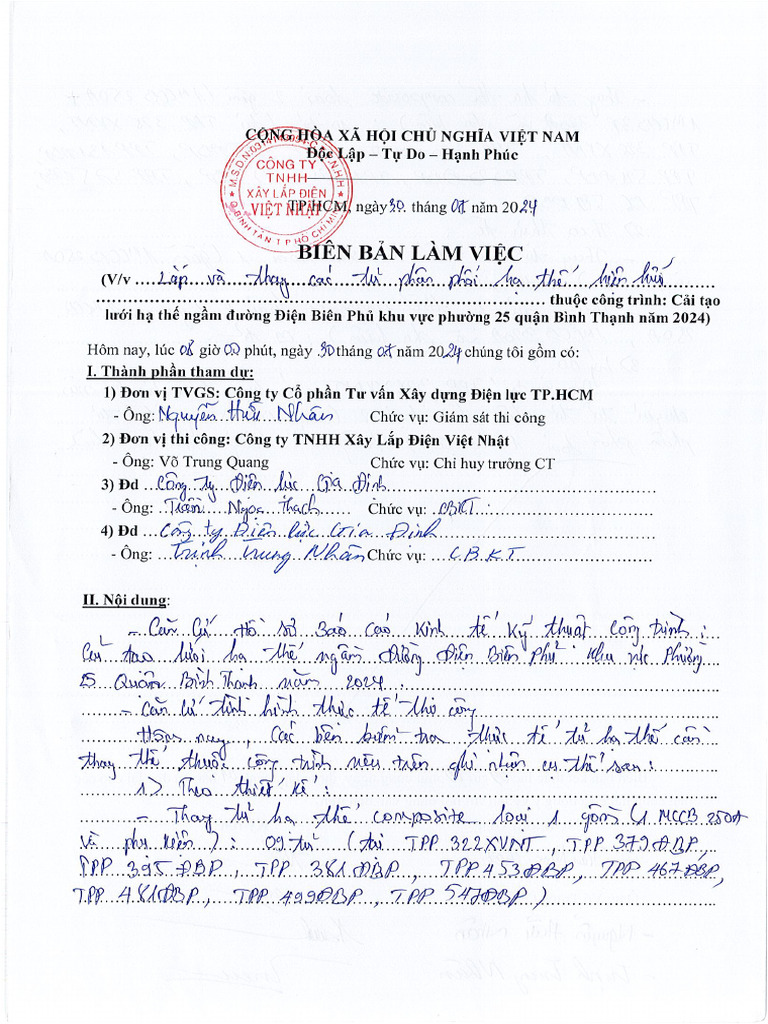 CỘNG HÒA XÃ HỘI CHỦ NGHĨA VIỆT NAM
Độc Lập – Tự Do – Hạnh Phúc
CÔNG TY
TNHH
XÂY LẮP ĐIỆN
VIỆT NHẬT
TP.HCM, ngày 30 tháng 07 năm 2024
BIÊN BẢN LÀM VIỆC
(V/v Lắp và thay các tủ phân phối hạ thế hiện hữu
thuộc công trình: Cải tạo
lưới hạ thế ngầm đường Điện Biên Phủ khu vực phường 25 quận Bình Thạnh năm 2024)
Hôm nay, lúc 08 giờ 00 phút, ngày 30 tháng 07 năm 2024 chúng tôi gồm có:
I. Thành phần tham dự:
1) Đơn vị TVGS: Công ty Cổ phần Tư vấn Xây dựng Điện lực TP.HCM
- Ông: Nguyễn Hữu Nhân Chức vụ: Giám sát thi công
2) Đơn vị thi công: Công ty TNHH Xây Lắp Điện Việt Nhật
- Ông: Võ Trung Quang Chức vụ: Chỉ huy trưởng CT
3) Đd Công ty Điện lực Gia Định
- Ông: Trần Ngọc Thạch Chức vụ: CBKT
4) Đd Công ty Điện lực Gia Định
- Ông: Trịnh Trung Nhân Chức vụ: C.B.K.T
II. Nội dung:
- Căn cứ Hồ sơ Báo cáo Kinh tế Kỹ thuật công trình:
Cải tạo lưới hạ thế ngầm đường Điện Biên Phủ khu vực Phường
25 Quận Bình Thạnh năm 2024.
- Căn cứ tình hình thực tế thi công
Hôm nay, các bên kiểm tra thực tế tủ hạ thế cần
thay thế thuộc công trình nêu trên ghi nhận cụ thể sau:
1) Theo thiết kế:
- Thay tủ hạ thế composite loại 1 gồm (1 MCCB 250A
và phụ kiện): 09 tủ (tại TPP 322XVNT, TPP 379ĐBP,
TPP 395 ĐBP, TPP 381ĐBP, TPP 453ĐBP, TPP 467ĐBP,
TPP 481ĐBP, TPP 499ĐBP, TPP 547ĐBP)